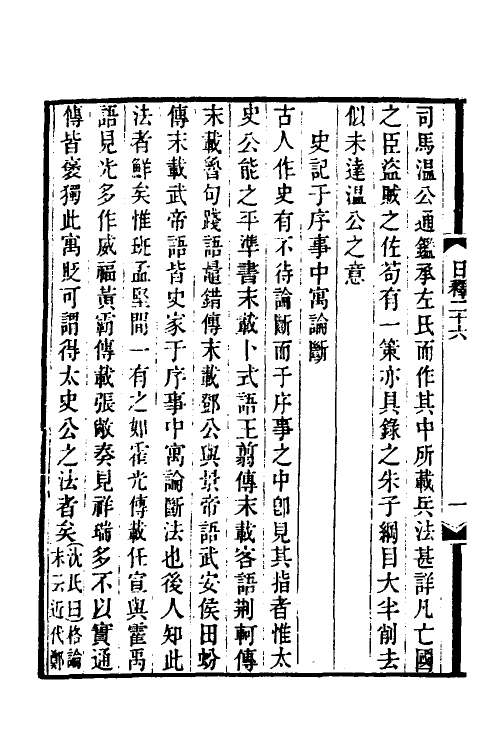 司馬溫公通鑑承左氏而作其中所載兵法甚詳凡亡國
之臣盜賊之佐苟有一策亦具錄之朱子綱目大半削去
似未達溫公之意
史記于序事中寓論斷
古人作史有不待論斷而于序事之中卽見其指者惟太
史公能之平準書末載卜式語王翦傳末載客語荆軻傳
末載魯句踐語鼂錯傳末載鄧公與景帝語武安侯田蚡
傳末載武帝語皆史家于序事中寓論斷法也後人知此
法者鮮矣惟班孟堅間一有之如霍光傳載任宣與霍禹
語見光多作威福黃霸傳載張敞奏見祥瑞多不以實通
傳皆襃獨此寓貶可謂得太史公之法者矣沈氏曰格論
末云近代鄭
日釋二十六
一